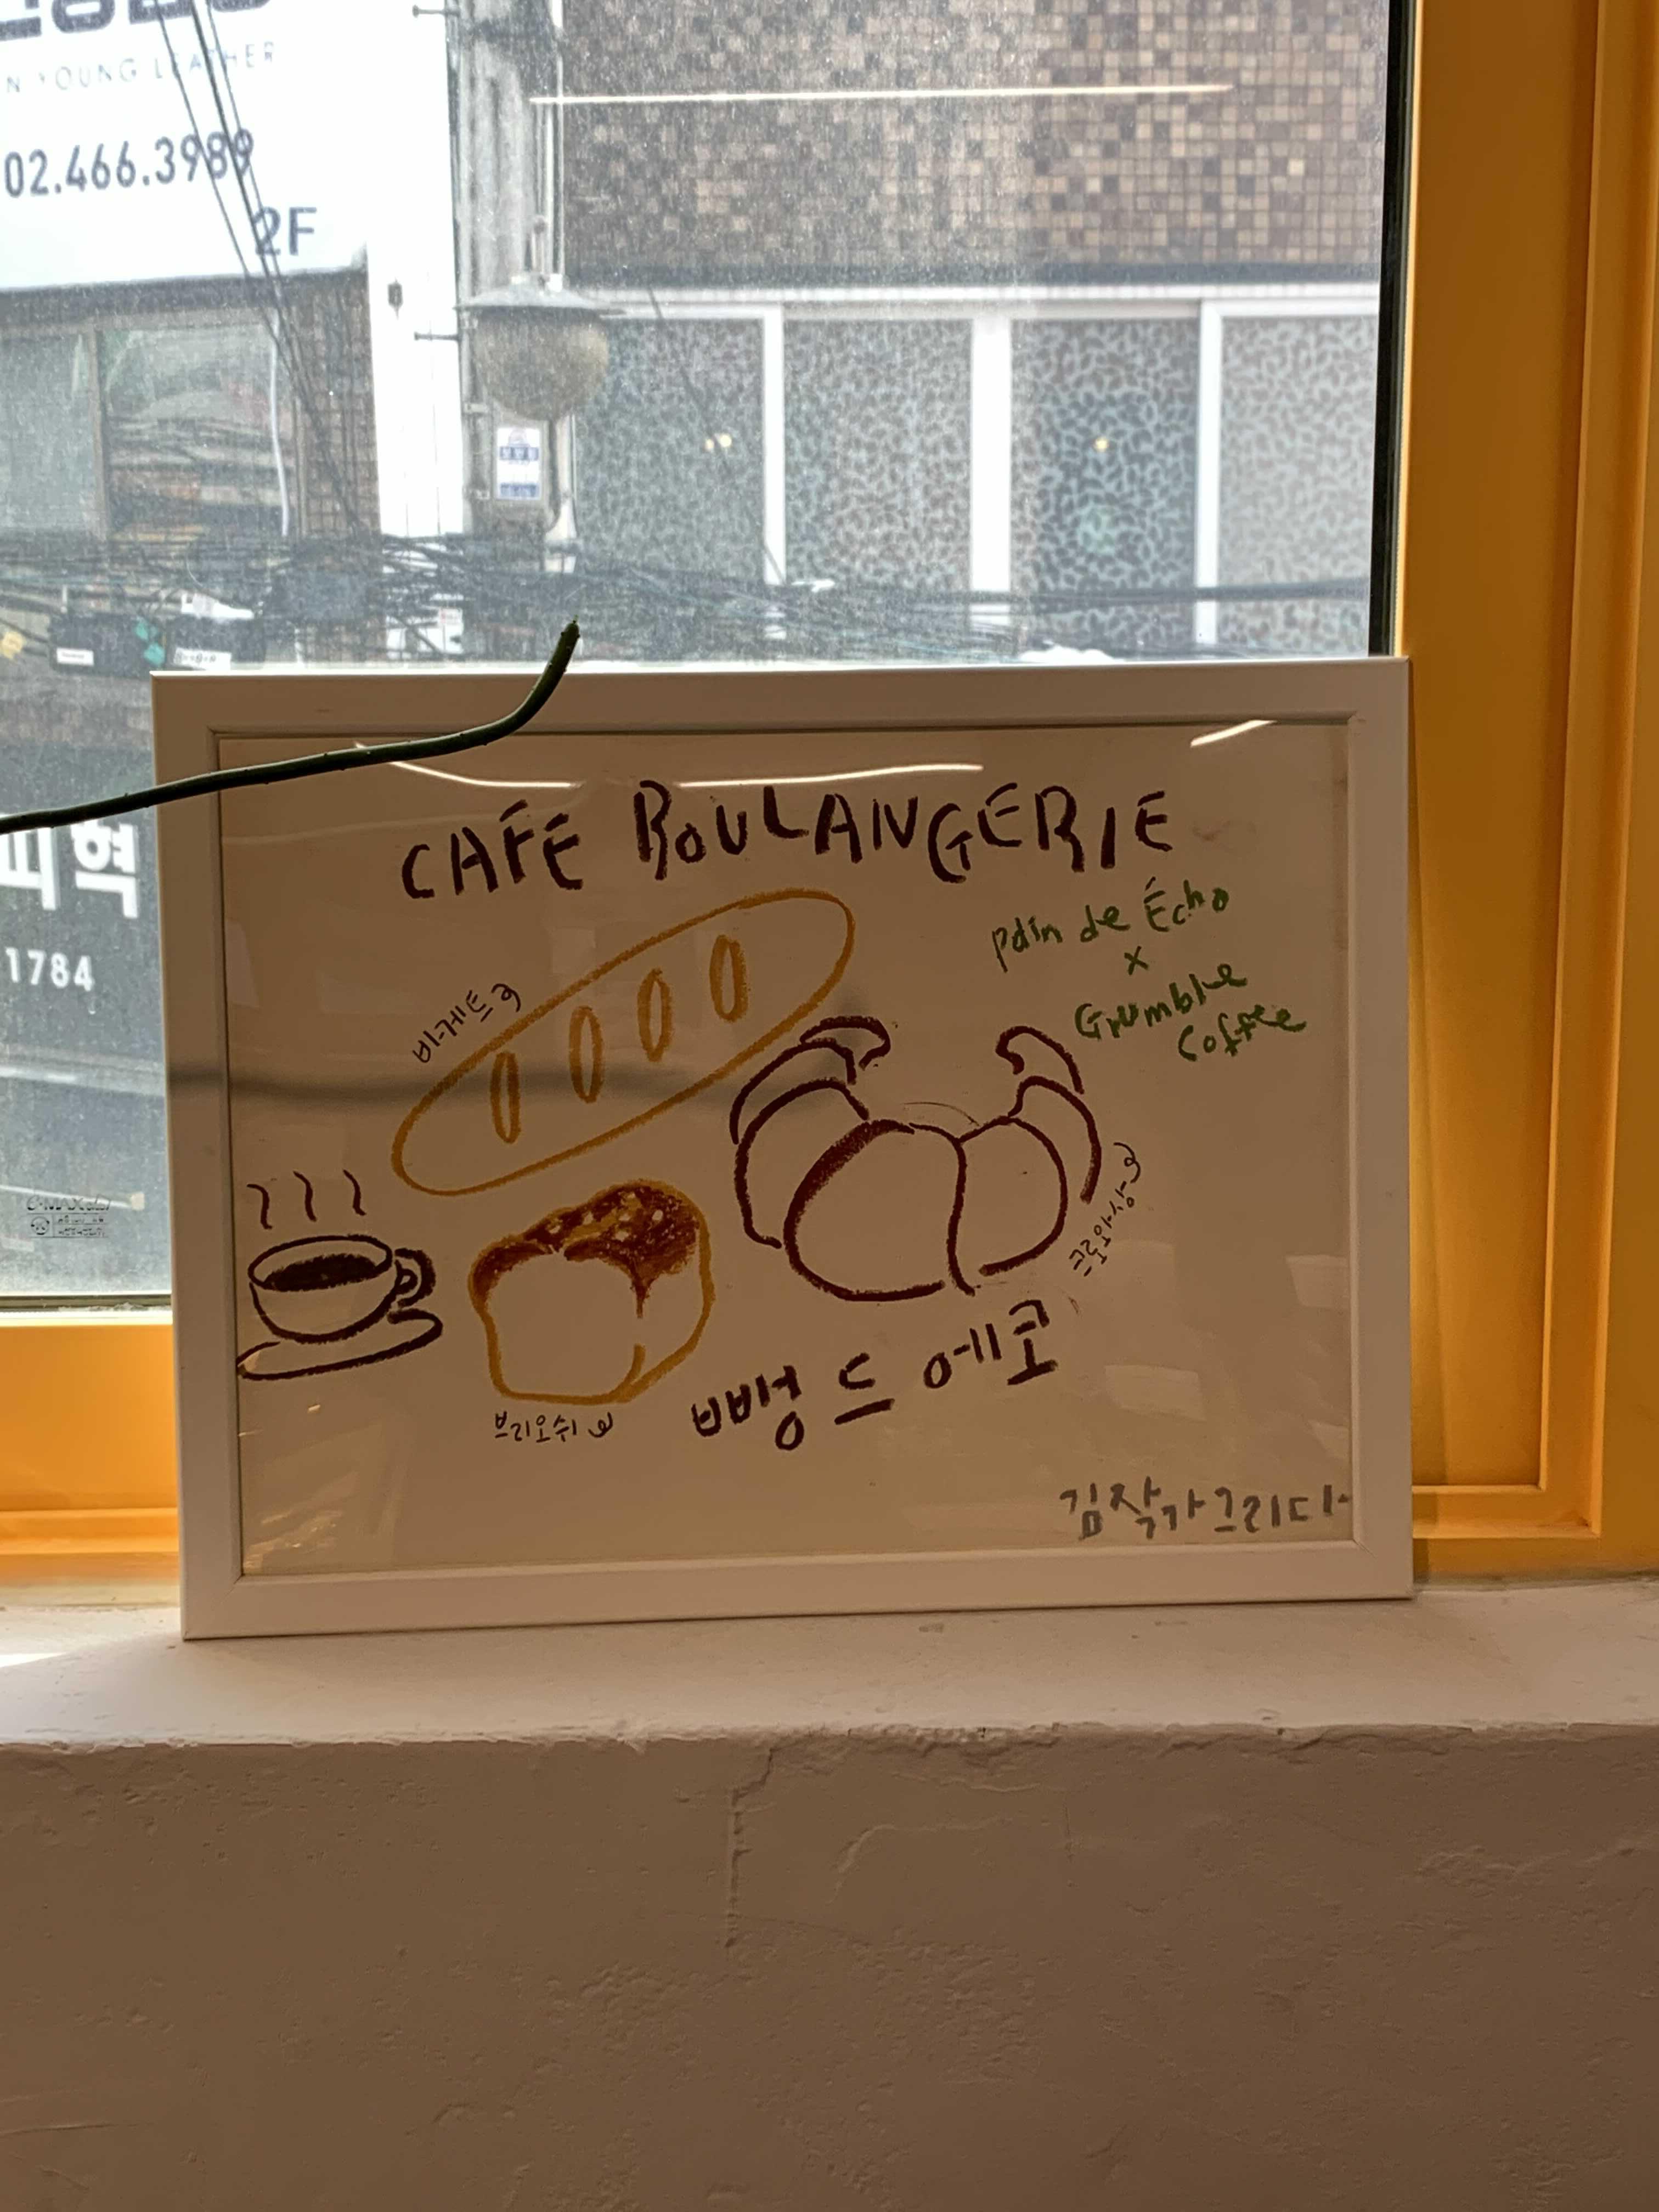 N YOUNG LEATHER
02.466.3989
2F
1784
CAFÉ BOULANGERIE
Pain de Écho
x
Grumble
Coffee
바게트
크로아상
브리오쉬
뺑 드 에코
김작가그리다